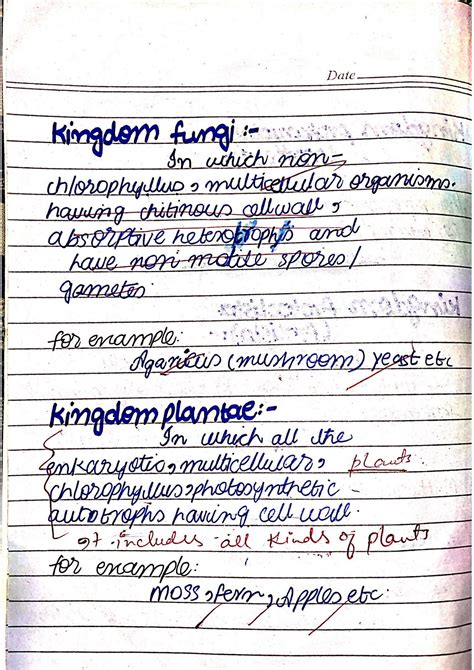 Date
Kingdom fungi :-
In which non-
chlorophyllus, multicellular organisms.
having chitinous cell wall,
absorptive heterotrophs and
have non motile spores/
gametes.
for example:
Agaricus (mushroom) yeast etc
Kingdom plantae:-
In which all the
eukaryotic, multicellular, plants.
chlorophyllus, photosynthetic -
autotrophs having cell wall.
It includes all kinds of plants
for example:
Moss, fern, Apples etc.